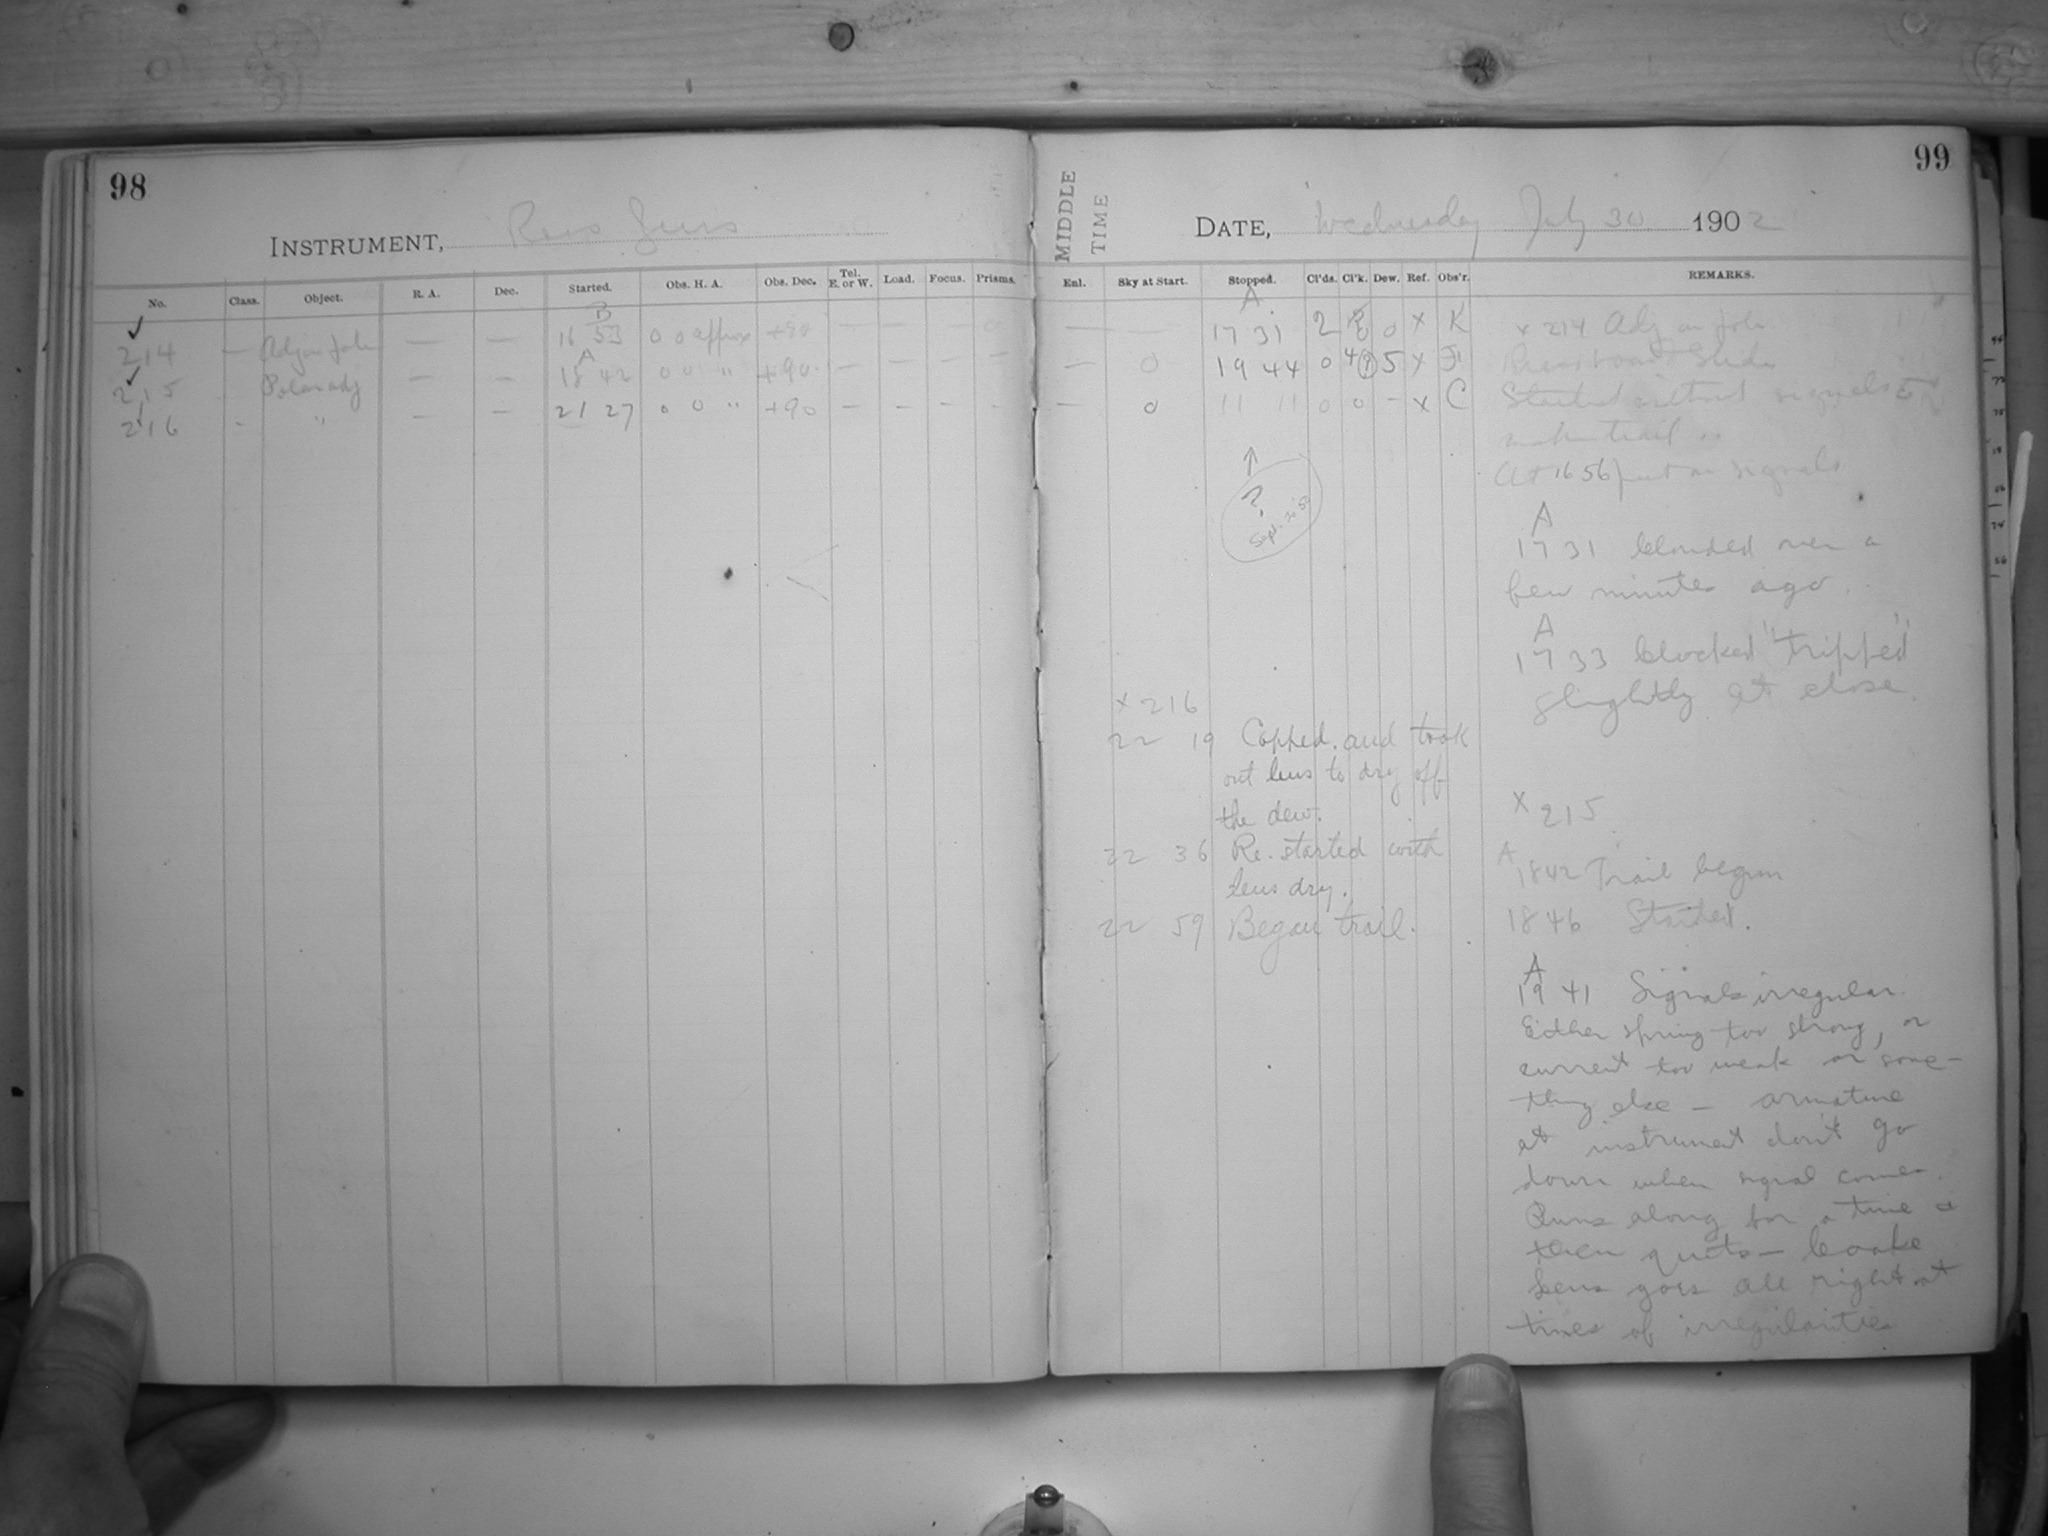 98
INSTRUMENT, Ross Lens
No. Class. Object. R. A. Dec. Started. Obs. H. A. Obs. Dec. Tel. E. or W. Load. Focus. Prisms.
✓ B
214 — Adj on Pole — — 16 53 0 0 approx +90 — — — 
✓ A
215 Polar adj — — 18 42 0 0 " +90 — — — —
216 - " — — 21 27 0 0 " +90 — - - -
99
MIDDLE TIME
DATE, Wednesday July 30 1902
Enl. Sky at Start. Stopped. Cl'ds. Cl'k. Dew. Ref. Obs'r. REMARKS.
A
— — 17 31 2 0 x K
— 0 19 44 0 4 5 x
— 0 11 11 0 0 - x C
↑
?
Sept.
x 216
22 19 Capped. and took
out lens to dry off
the dew.
22 36 Re-started with
lens dry.
22 59 Began trail.
x 214 Adj on Pole
Slide
Started without signals
trail
At 16 56 put on signals
A
17 31 clouded over a
few minutes ago.
A
17 33 clocked "tripped"
slightly at close.
x 215
A
1842 Trail begun
1846 Started.
A
19 41 Signals irregular.
Either spring too strong, or
current too weak or some-
thing else — armature
at instrument don't go
down when signal comes.
Runs along for a time &
then quits —
goes all right at
times of irregularities